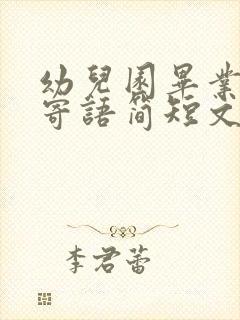 幼兒園畢業
寄語簡短文
李君蕾